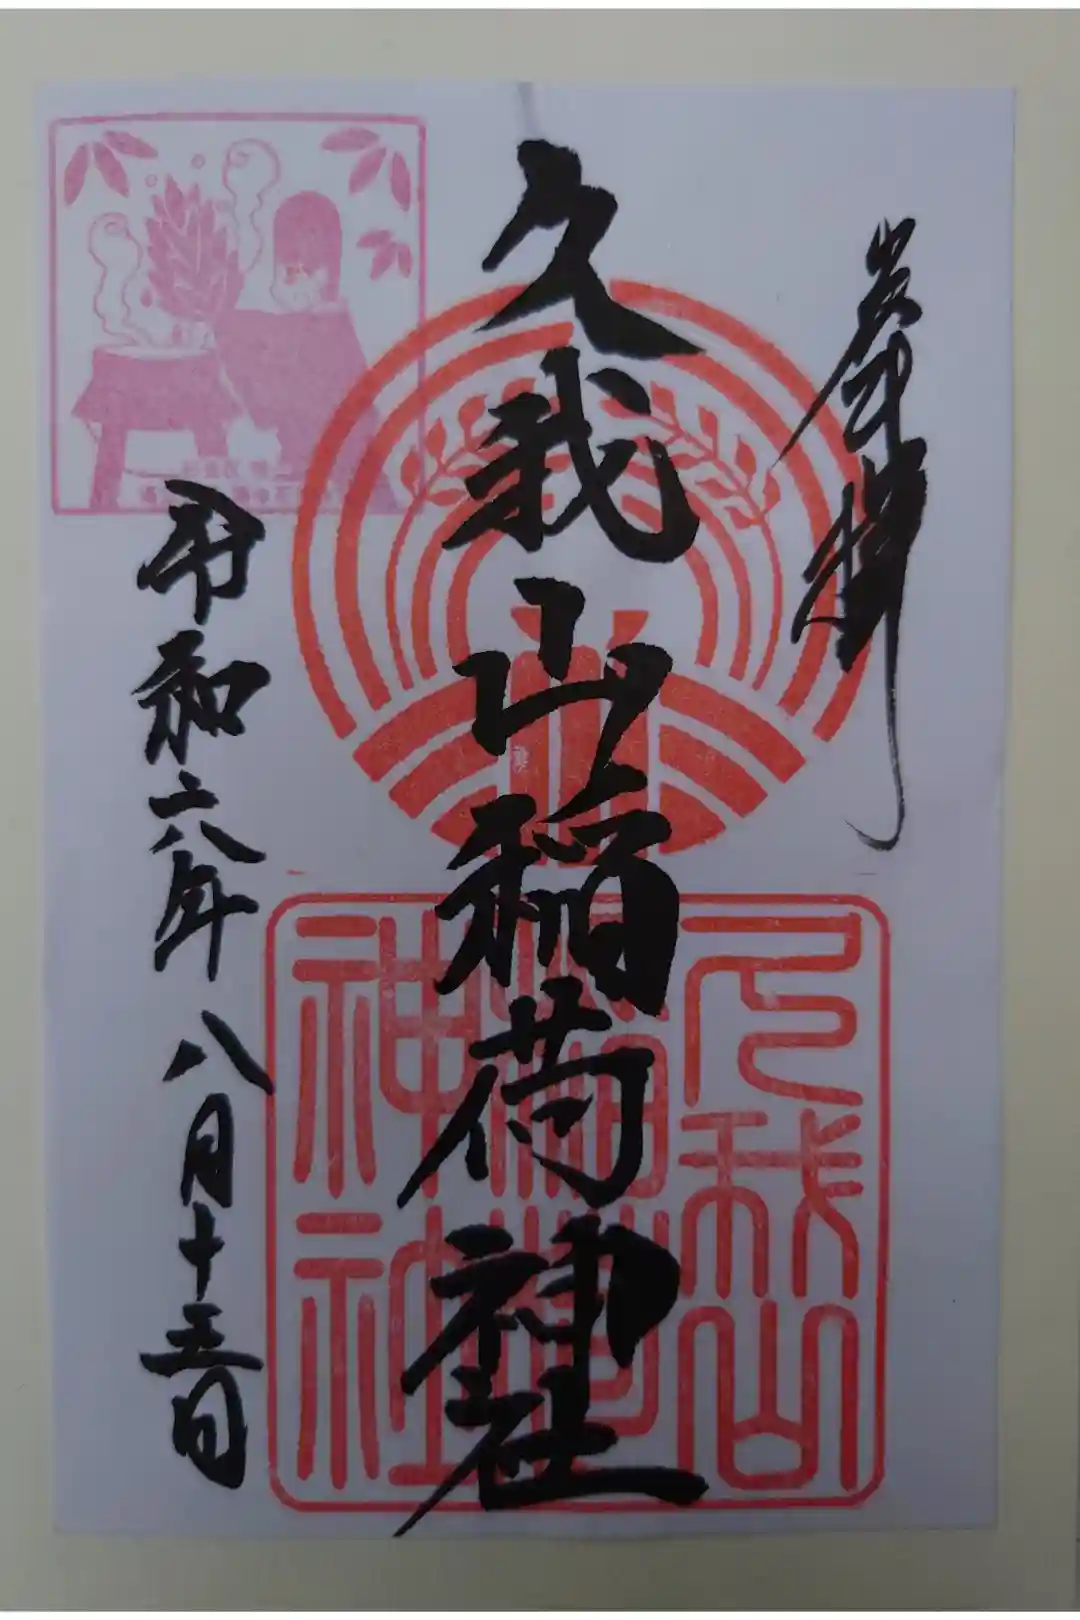 奉拝
久我山稲荷神社
令和六年八月十五日
久我山
稲荷
神社